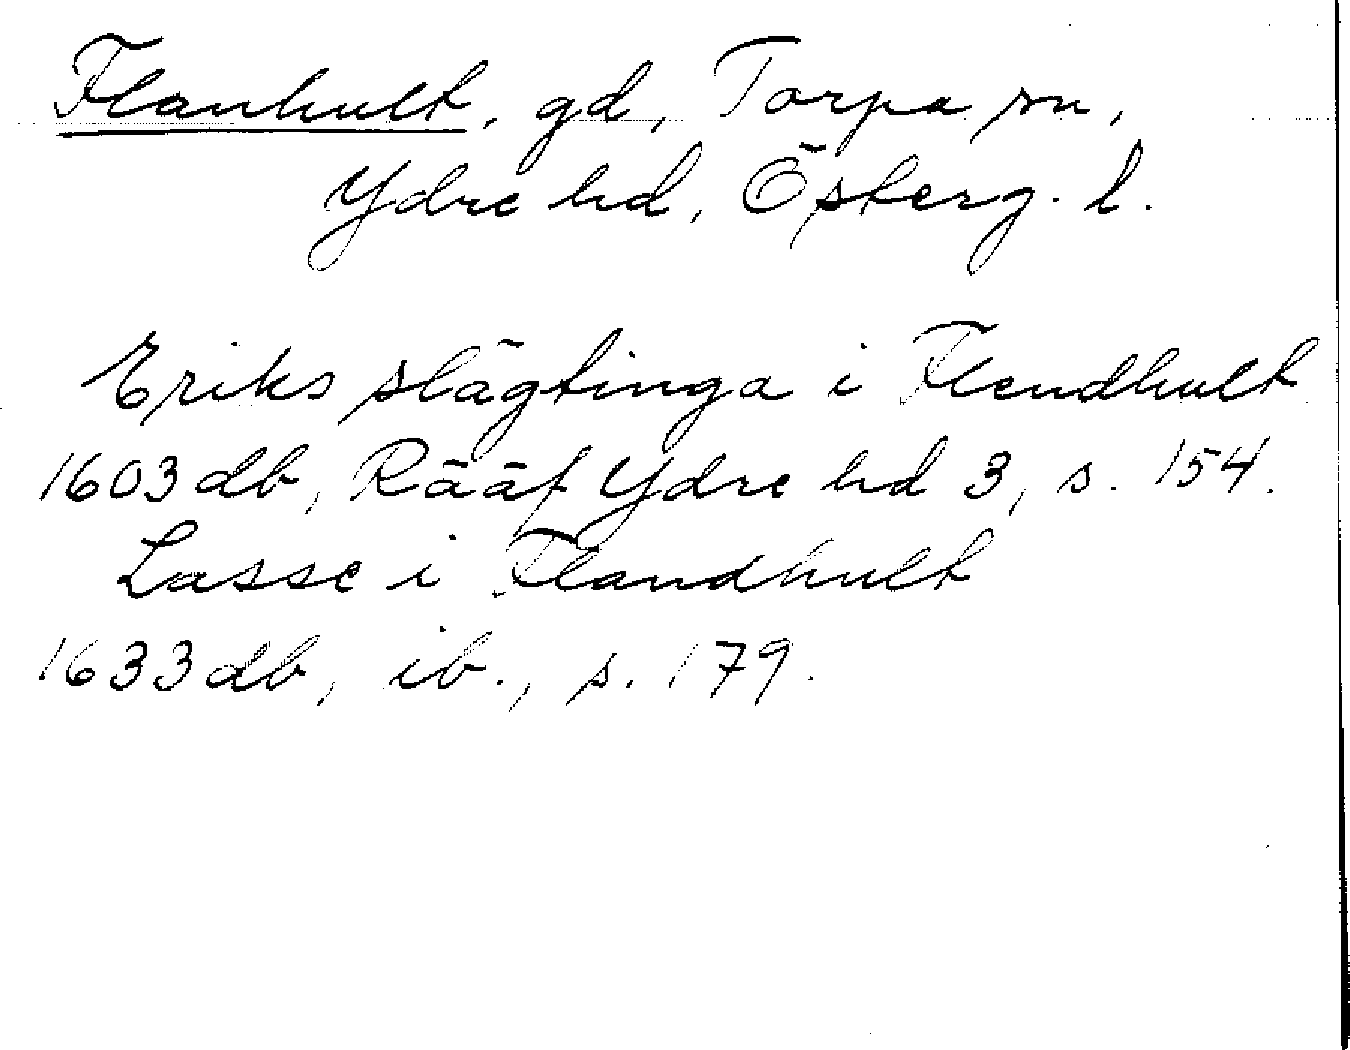 Flanhult, gd, Torpa sn,
Ydre hd, Österg. l.
Eriks slägtinga i Flendhult
1603 db, Rääf Ydre hd 3, s. 154.
Lasse i Flandhult
1633 db, ib., s. 179.